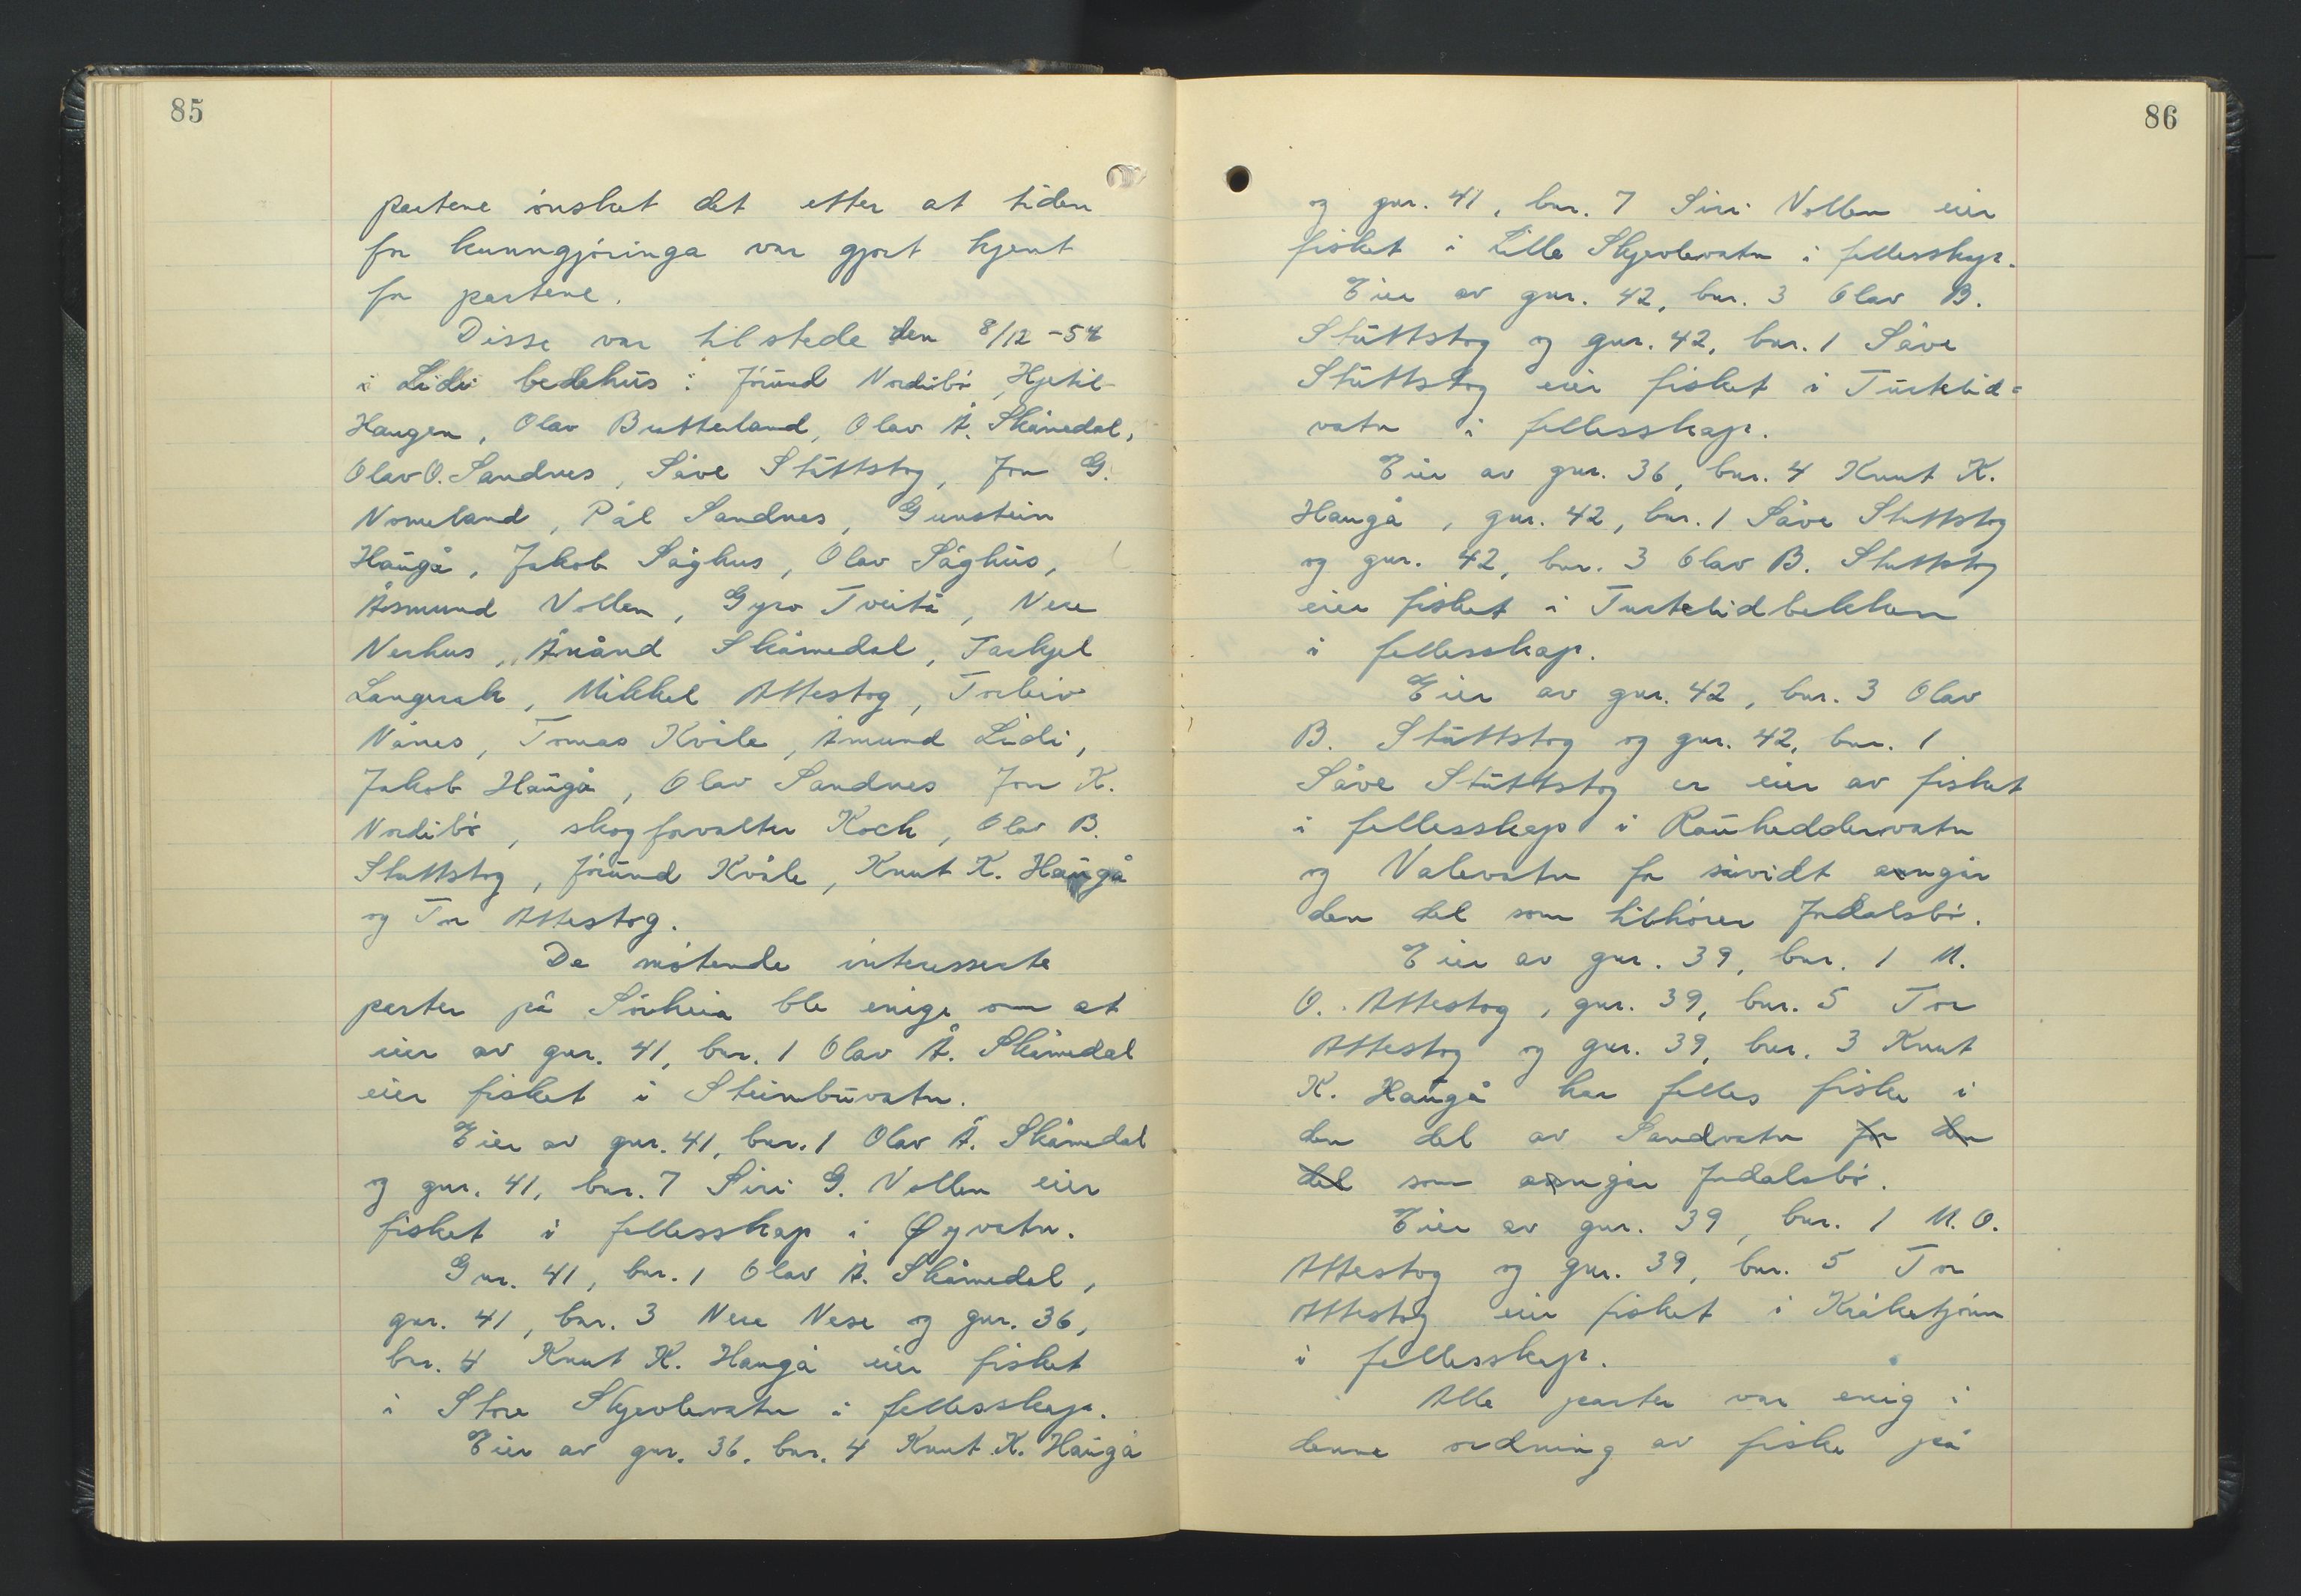 85
partene ønsket det etter at tiden
for kunngjøringa var gjort kjent
for partene.
Disse var til stede den 8/12 -54
i Lidi bedehus: Jórund Nordibø, Kjetil
Haugen, Olav Butterland, Olav Å. Skåmedal,
Olav O. Sandnes, Såve Stuttstog, Jon G.
Nomeland, Pål Sandnes, Gunstein
Haugå, Jakob Såghus, Olav Såghus,
Åsmund Vollen, Gyro Tveitå, Nere
Nerhus, Ånånd Skåmedal, Tarkjel
Langerak, Mikkel Attestog, Torleiv
Nånes, Tomas Kvåle, Åmund Lidi,
Jakob Haugå, Olav Sandnes Jon K.
Nordibø, skogforvalter Koch, Olav B.
Stuttstog, Jórund Kvåle, Knut K. Haugå
og Tor Attestog.
De møtende interesserte
parter på Sørheia ble enige om at
eier av gnr. 41, bnr. 1 Olav Å. Skåmedal
eier fisket i Steinbuvatn.
Eier av gnr. 41, bnr. 1 Olav Å. Skåmedal
og gnr. 41, bnr. 7 Siri G. Vollen eier
fisket i fellesskap i Øyvatn.
Gnr. 41, bnr. 1 Olav Å. Skåmedal,
gnr. 41, bnr. 3 Nere Nese og gnr. 36,
bnr. 4 Knut K. Haugå eier fisket
i Store Skjevlevatn i fellesskap.
Eier av gnr. 36, bnr. 4 Knut K. Haugå
86
og gnr. 41, bnr. 7 Siri Vollen eier
fisket i Lille Skjevlevatn i fellesskap.
Eier av gnr. 42, bnr. 3 Olav B.
Stuttstog og gnr. 42, bnr. 1 Såve
Stuttstog eier fisket i Turtelid=
vatn i fellesskap.
Eier av gnr. 36, bnr. 4 Knut K.
Haugå, gnr. 42, bnr. 1 Såve Stuttstog
og gnr. 42, bnr. 3 Olav B. Stuttstog
eier fisket i Turtelidbekken
i fellesskap.
Eier av gnr. 42, bnr. 3 Olav
B. Stuttstog og gnr. 42, bnr. 1
Såve Stuttstog er eier av fisket
i fellesskap i Rauheddervatn
og Valevatn for såvidt angår
den del som tilhører Jndalsbø.
Eier av gnr. 39, bnr. 1 M.
O. Attestog, gnr. 39, bnr. 5 Tor
Attestog og gnr. 39, bnr. 3 Knut
K. Haugå har felles fiske i
den del av Sandvatn for den
del som angår Jndalsbø.
Eier av gnr. 39, bnr. 1 M. O.
Attestog og gnr. 39, bnr. 5 Tor
Attestog eier fisket i Kråketjónn
i fellesskap.
Alle parter var enig i
denne ordning av fiske på